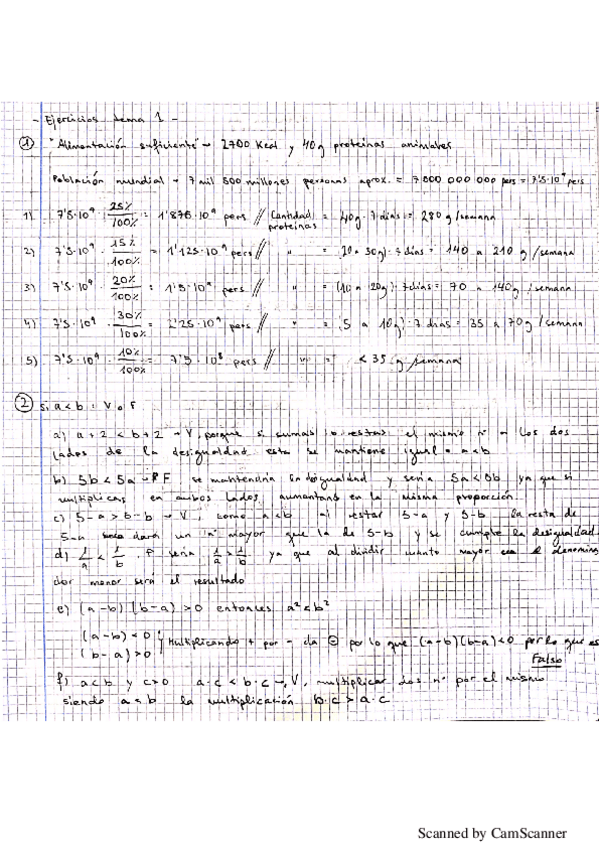 - Ejercicios tema 1 -
① "Alimentación suficiente" → 2700 Kcal y 40g proteinas animales
Población mundial → 7 mil 500 millones personas aprox. = 7 500 000 000 pers = 7'5·10⁹ pers
1) 7'5·10⁹ · 25%/100% = 1'875·10⁹ pers // Cantidad proteinas = 40g · 7 dias = 280 g/semana
2) 7'5·10⁹ · 15%/100% = 1'125·10⁹ pers // " = (20 a 30g) · 7 dias = 140 a 210 g/semana
3) 7'5·10⁹ · 20%/100% = 1'5·10⁹ pers // " = (10 a 20g) · 7 dias = 70 a 140g/semana
4) 7'5·10⁹ · 30%/100% = 2'25·10⁹ pers // " = (5 a 10g) · 7 dias = 35 a 70g/semana
5) 7'5·10⁹ · 10%/100% = 7'5·10⁸ pers // " = < 35 g/semana
② Si a<b : V o F
a) a+2 < b+2 → V, porque si sumas o restas el mismo nº a los dos
lados de la desigualdad esta se mantiene igual a<b
b) 5b < 5a → F se mantendría la desigualdad y sería 5a<5b ya que si
multiplicas en ambos lados aumentan en la misma proporción.
c) 5-a > 5-b → V, como a<b al restar 5-a y 5-b la resta de
5-a dará un nº mayor que la de 5-b y se cumple la desigualdad.
d) 1/a < 1/b . F sería 1/a > 1/b ya que al dividir cuanto mayor sea el denomina
dor menor será el resultado
e) (a-b)(b-a) > 0 entonces a²<b²
(a-b) < 0
(b-a) > 0 ; Multiplicando + por - da ⊖ por lo que (a-b)(b-a)<0 por lo que es
Falso
f) a<b y c>0 a·c < b·c → V, multiplicar dos nº por el mismo
siendo a<b la multiplicación b·c > a·c
Scanned by CamScanner